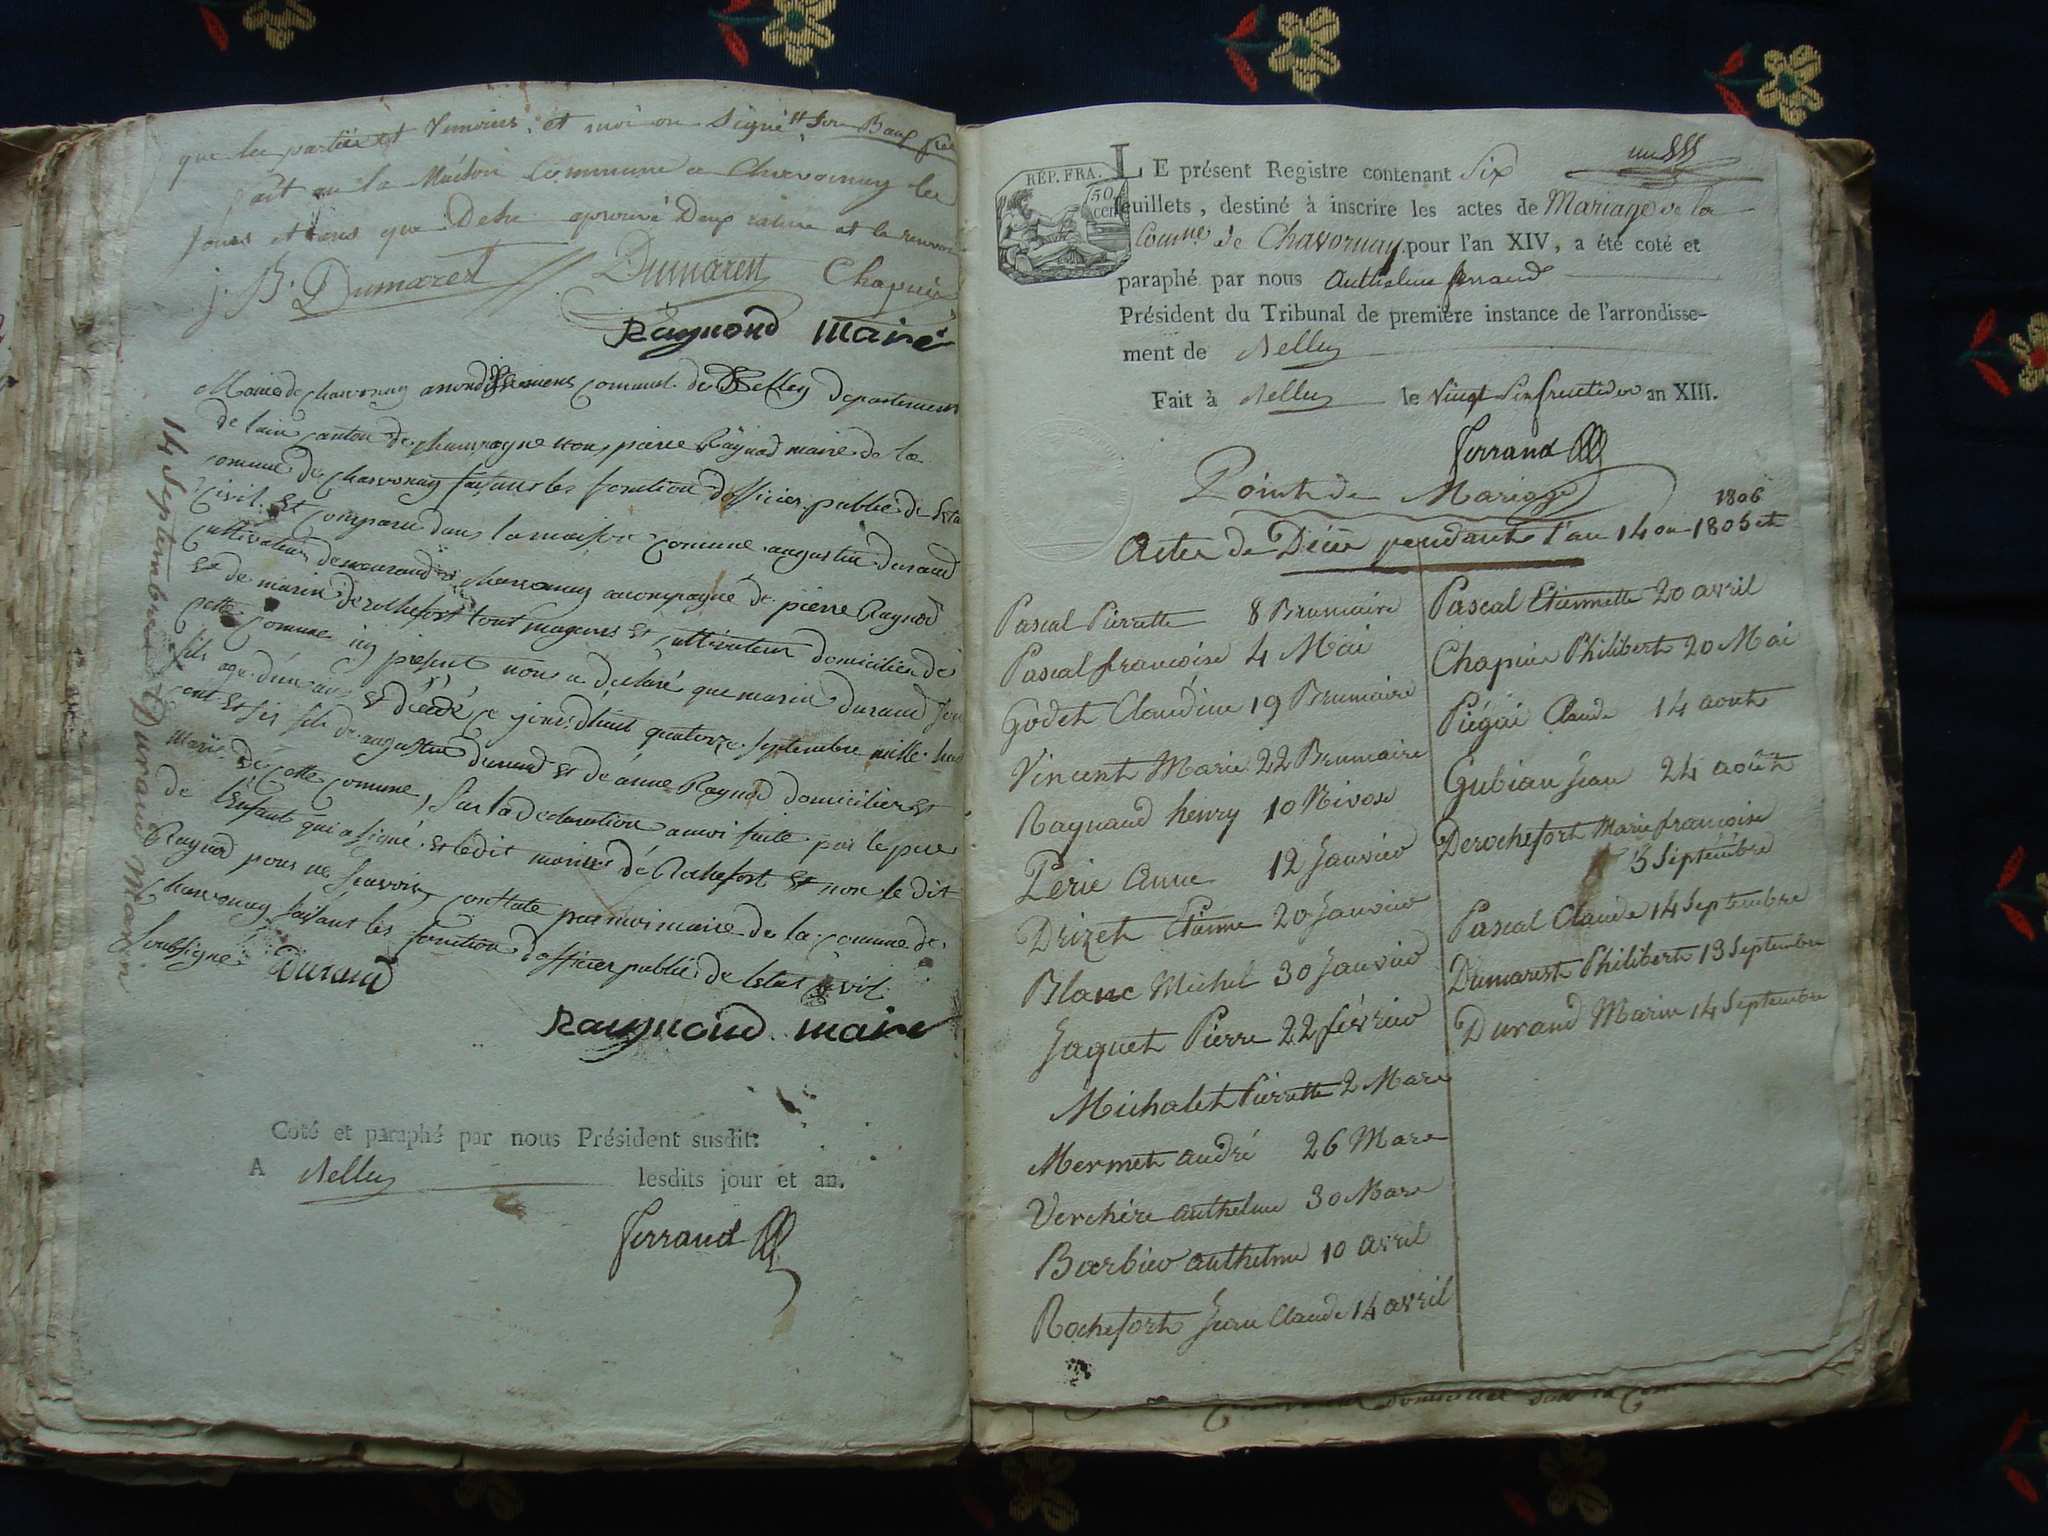 que les parties et Temoins et moi on Signé
fait en la Maison Commune a Chavornay les
Jours et ans que Dehu aprouvé Deux rature et le renvoi
j. B. Dumarest Dumarest Chapuis
Raymond maire
Mairie de chavornay arondissement comunal de Belley departement
de lain canton de champagne nous pierre Raynod maire de la
comune de chavornay faisant les fonction dofficier public de letat
civil. Est comparu dans la maison comune augustin durand
cultivateur demeurand a chavornay acompagné de pierre Raynod
et de marin de rochefort tout mageurs et cultivateur domicilier de
cette comune icy présent nous a declaré que marin durand son
fils agé d'un an est décédé ce jourd'huit quatorze septembre mille huit
cent et six fils de augustin durand et de anne Raynod domicilier et
marié de cette comune, Sur la declaration a moi faite par le père
de l'Enfant qui a signé et ledit marin de Rochefort et non le dit
Raynod pour ne scavoir, constaté par moi maire de la comune de
chavornay faisant les fonction dofficier public de letat civil
soubsigné Durand
Raymond maire
14 Septembre Durand Marin
Coté et paraphé par nous Président susdit:
A Belley lesdits jour et an.
Ferrand
REP. FRA.
50
CEN
LE présent Registre contenant Six
feuillets, destiné à inscrire les actes de Mariage de la
Comune de Chavornay pour l'an XIV, a été coté et
paraphé par nous Anthelme ferrand
Président du Tribunal de première instance de l'arrondisse-
ment de Belley
Fait à Belley le Vingt Six fructidor an XIII.
Ferrand
Point de Mariage
1806
Actes de Décès pendant l'an 14 ou 1805 et
Pascal Pierrette 8 Brumaire
Pascal francoise 4 Mai
Godet Claudine 19 Brumaire
Vincent Marie 22 Brumaire
Raynaud henry 10 Nivose
Perie Anne 12 Janvier
Drizet Etienne 20 Janvier
Blanc Michel 30 Janvier
Jaquet Pierre 22 février
Michalet Pierrette 2 Mars
Mermet andré 26 Mars
Verchére anthelme 30 Mars
Barbier anthelme 10 avril
Rochefort Jean Claude 14 avril
Pascal Etiennette 20 avril
Chapuis Philibert 20 Mai
Piégai Claude 14 aout
Gubian Jean 24 août
Derochefort Marie francoise
3 Septembre
Pascal Claude 14 Septembre
Dumarest Philibert 13 Septembre
Durand Marin 14 Septembre